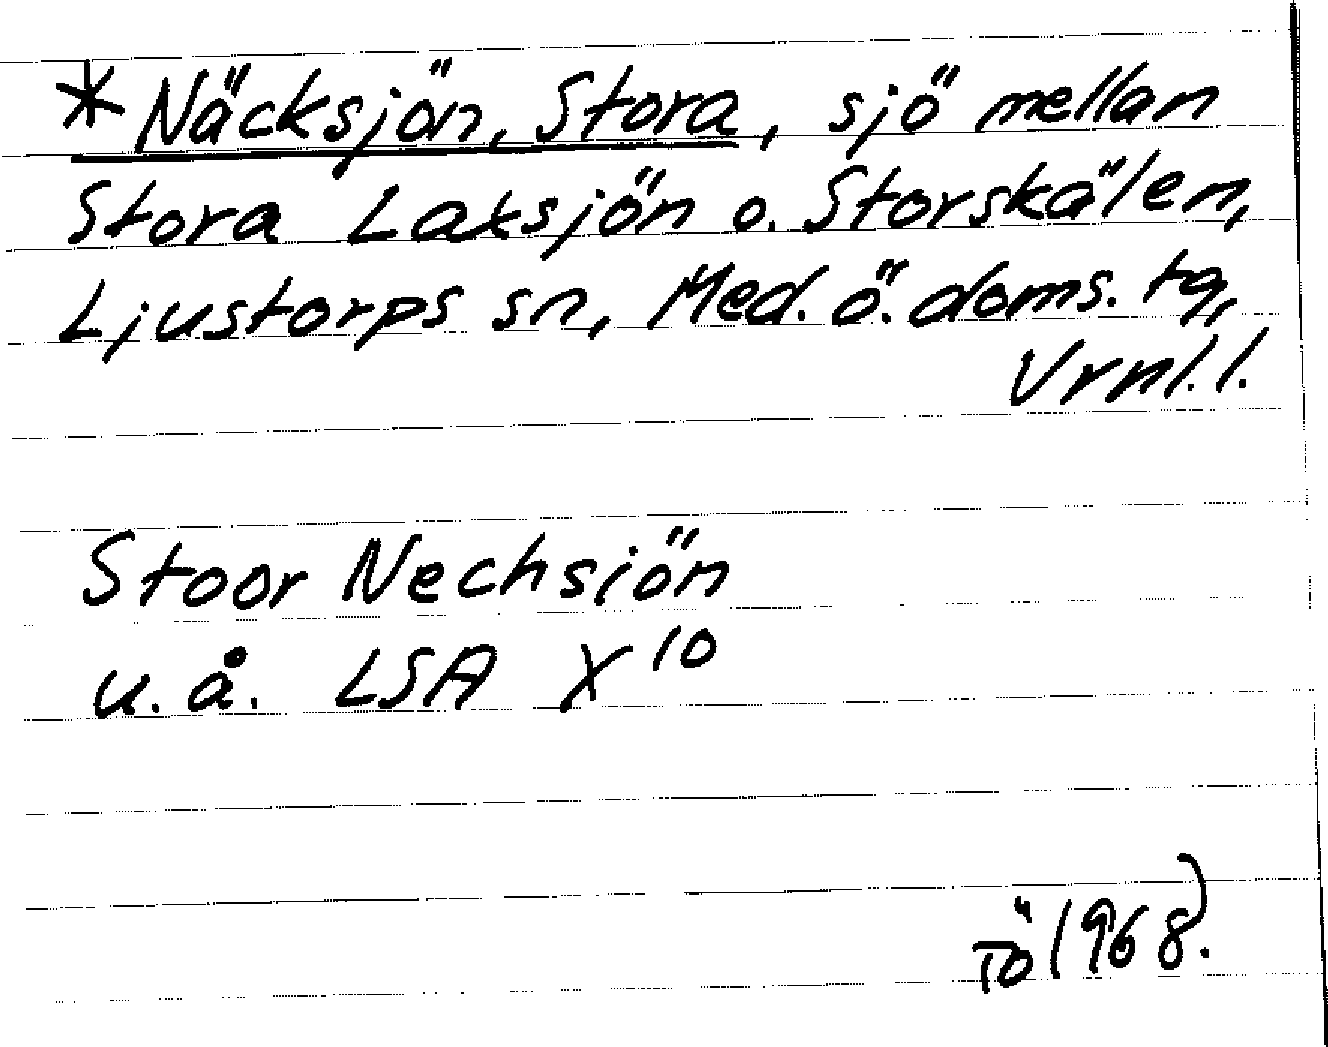 * Näcksjön, Stora, sjö mellan
Stora Laxsjön o. Storskälen,
Ljustorps sn, Med. ö. doms. tg,
Vrnl. l.
Stoor Nechsiön
u. å. LSA X 10
Tö 1968.